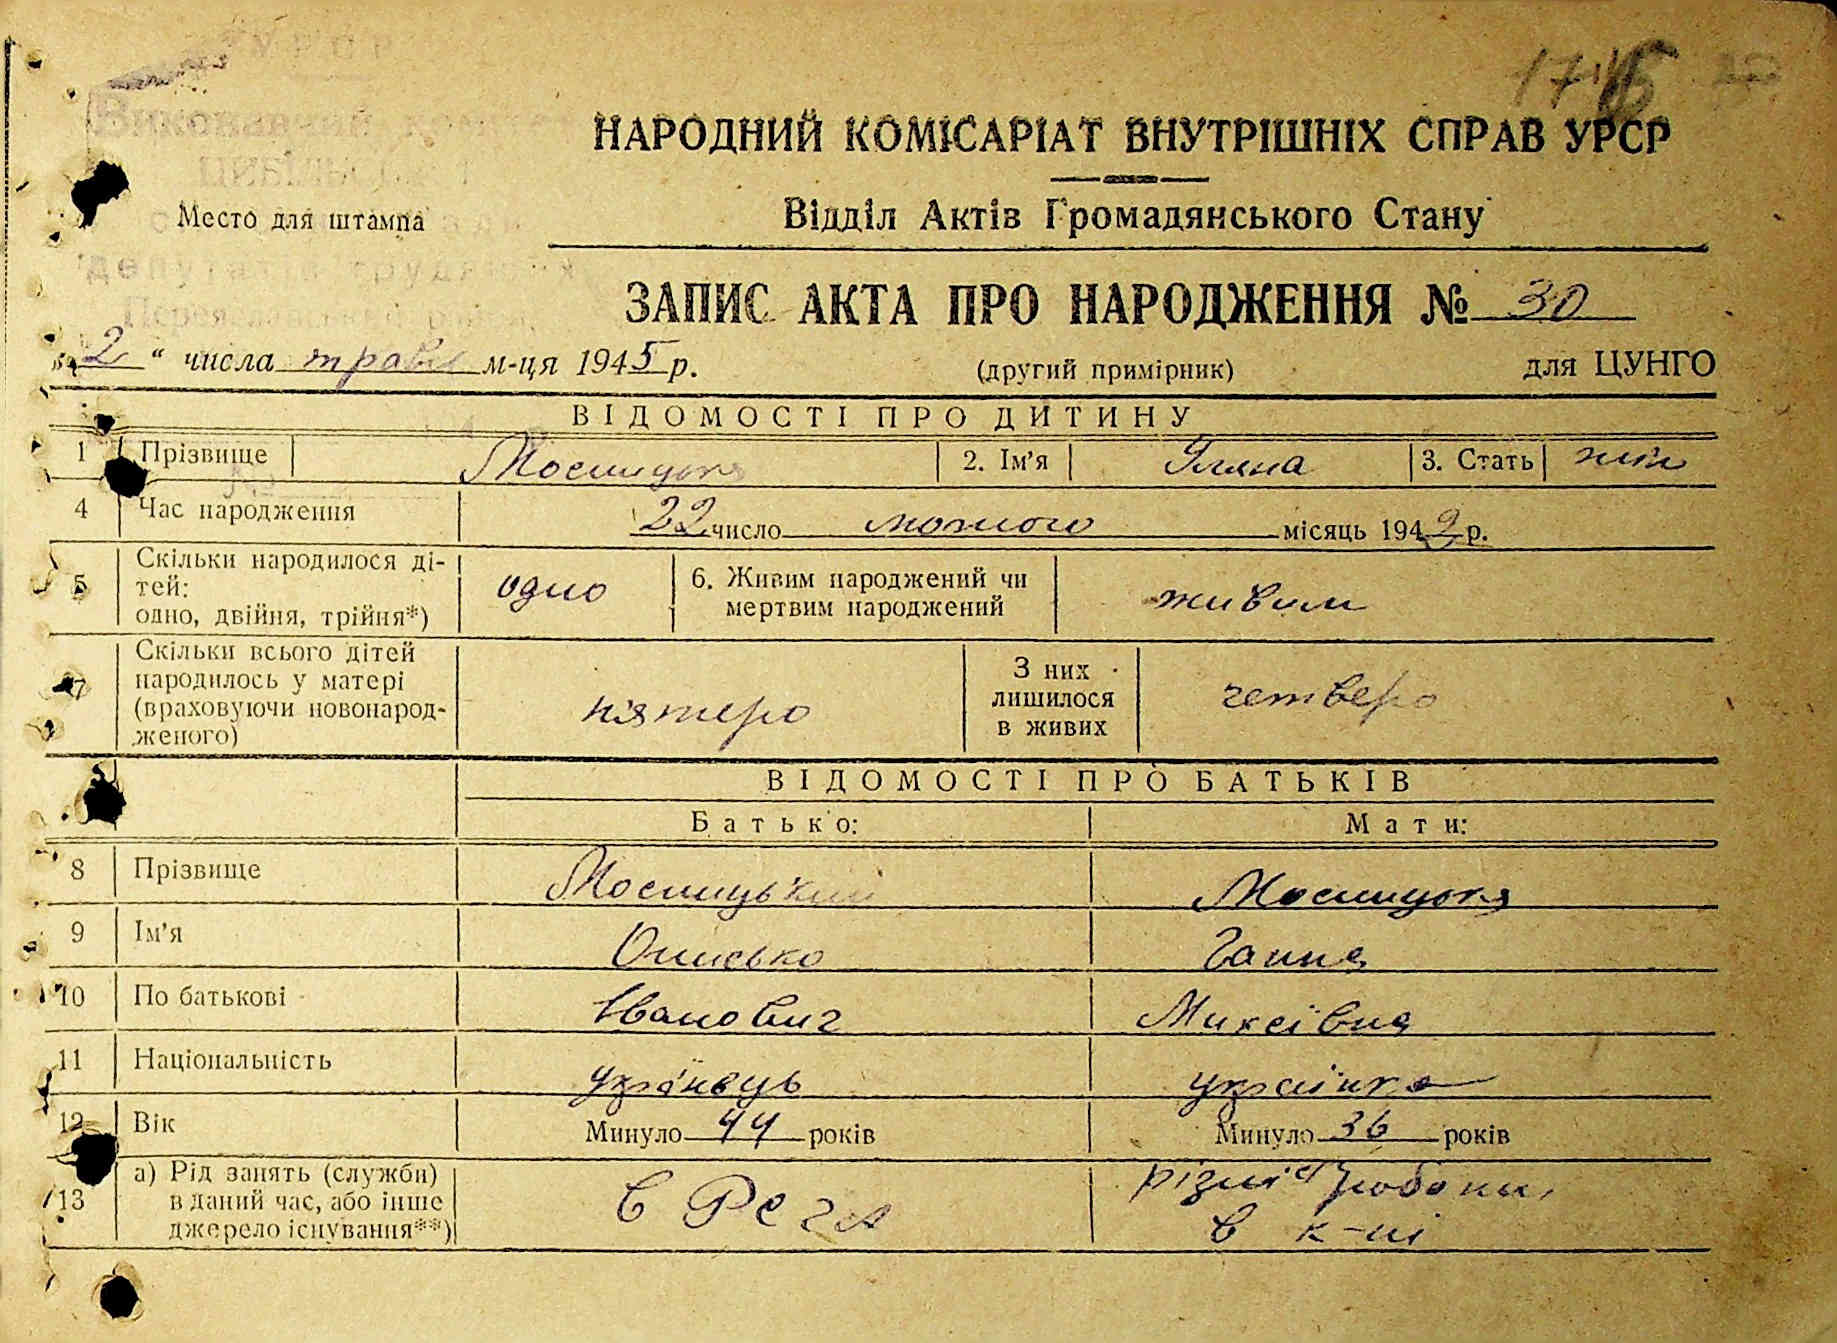 НАРОДНИЙ КОМІСАРІАТ ВНУТРІШНІХ СПРАВ УРСР
Виконавчий
Место для штампа
Відділ Актів Громадянського Стану
депутатів трудящих
ЗАПИС АКТА ПРО НАРОДЖЕННЯ № 30
„2“ числа травня м-ця 1945 р. (другий примірник) для ЦУНГО
ВІДОМОСТІ ПРО ДИТИНУ
1 Прізвище 2. Ім'я Уляна 3. Стать жін
4 Час народження 22 число лютого місяць 1942 р.
5 Скільки народилося дітей: одно, двійня, трійня*) одно 6. Живим народжений чи мертвим народжений живим
7 Скільки всього дітей народилось у матері (враховуючи новонародженого) п'ятеро З них лишилося в живих четверо
ВІДОМОСТІ ПРО БАТЬКІВ
Батько: Мати:
8 Прізвище
9 Ім'я Онисько Ганна
10 По батькові Іванович
11 Національність українець українка
12 Вік Минуло 44 років Минуло 36 років
13 а) Рід занять (служби) в даний час, або інше джерело існування**) в різні роботи в к-пі